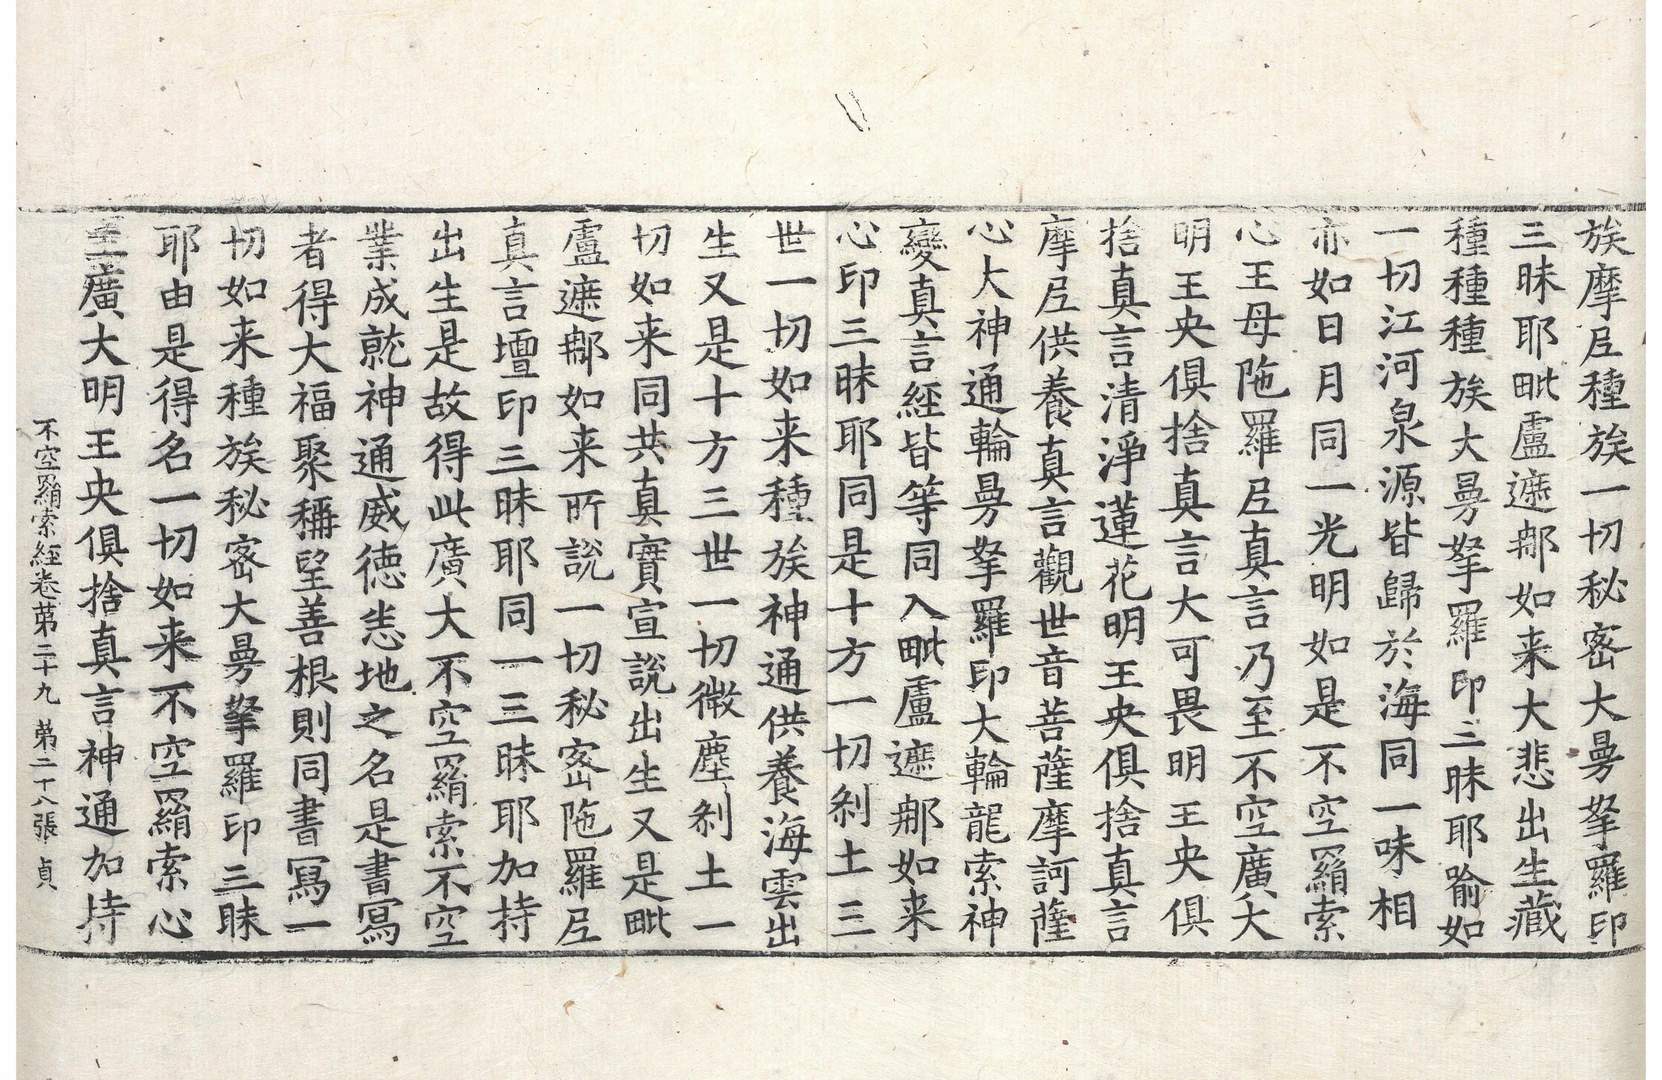 族摩尼種族一切秘密大曼拏羅印
三昧耶毗盧遮那如来大悲出生藏
種種種族大曼拏羅印三昧耶喻如
一切江河泉源皆歸於海同一味相
亦如日月同一光明如是不空羂索
心王母陁羅尼真言乃至不空廣大
明王央俱捨真言大可畏明王央俱
捨真言清淨蓮花明王央俱捨真言
摩尼供養真言觀世音菩薩摩訶薩
心大神通輪曼拏羅印大輪龍索神
變真言經皆等同入毗盧遮那如来
心印三昧耶同是十方一切刹土三
世一切如来種族神通供養海雲出
生又是十方三世一切微塵刹土一
切如来同共真實宣說出生又是毗
盧遮那如来所說一切秘密陁羅尼
真言壇印三昧耶同一三昧耶加持
出生是故得此廣大不空羂索不空
業成就神通威德悉地之名是書寫
者得大福聚稱堅善根則同書寫一
切如来種族秘密大曼拏羅印三昧
耶由是得名一切如来不空羂索心
王廣大明王央俱捨真言神通加持
不空羂索經卷苐二十九 苐二十八張 貞